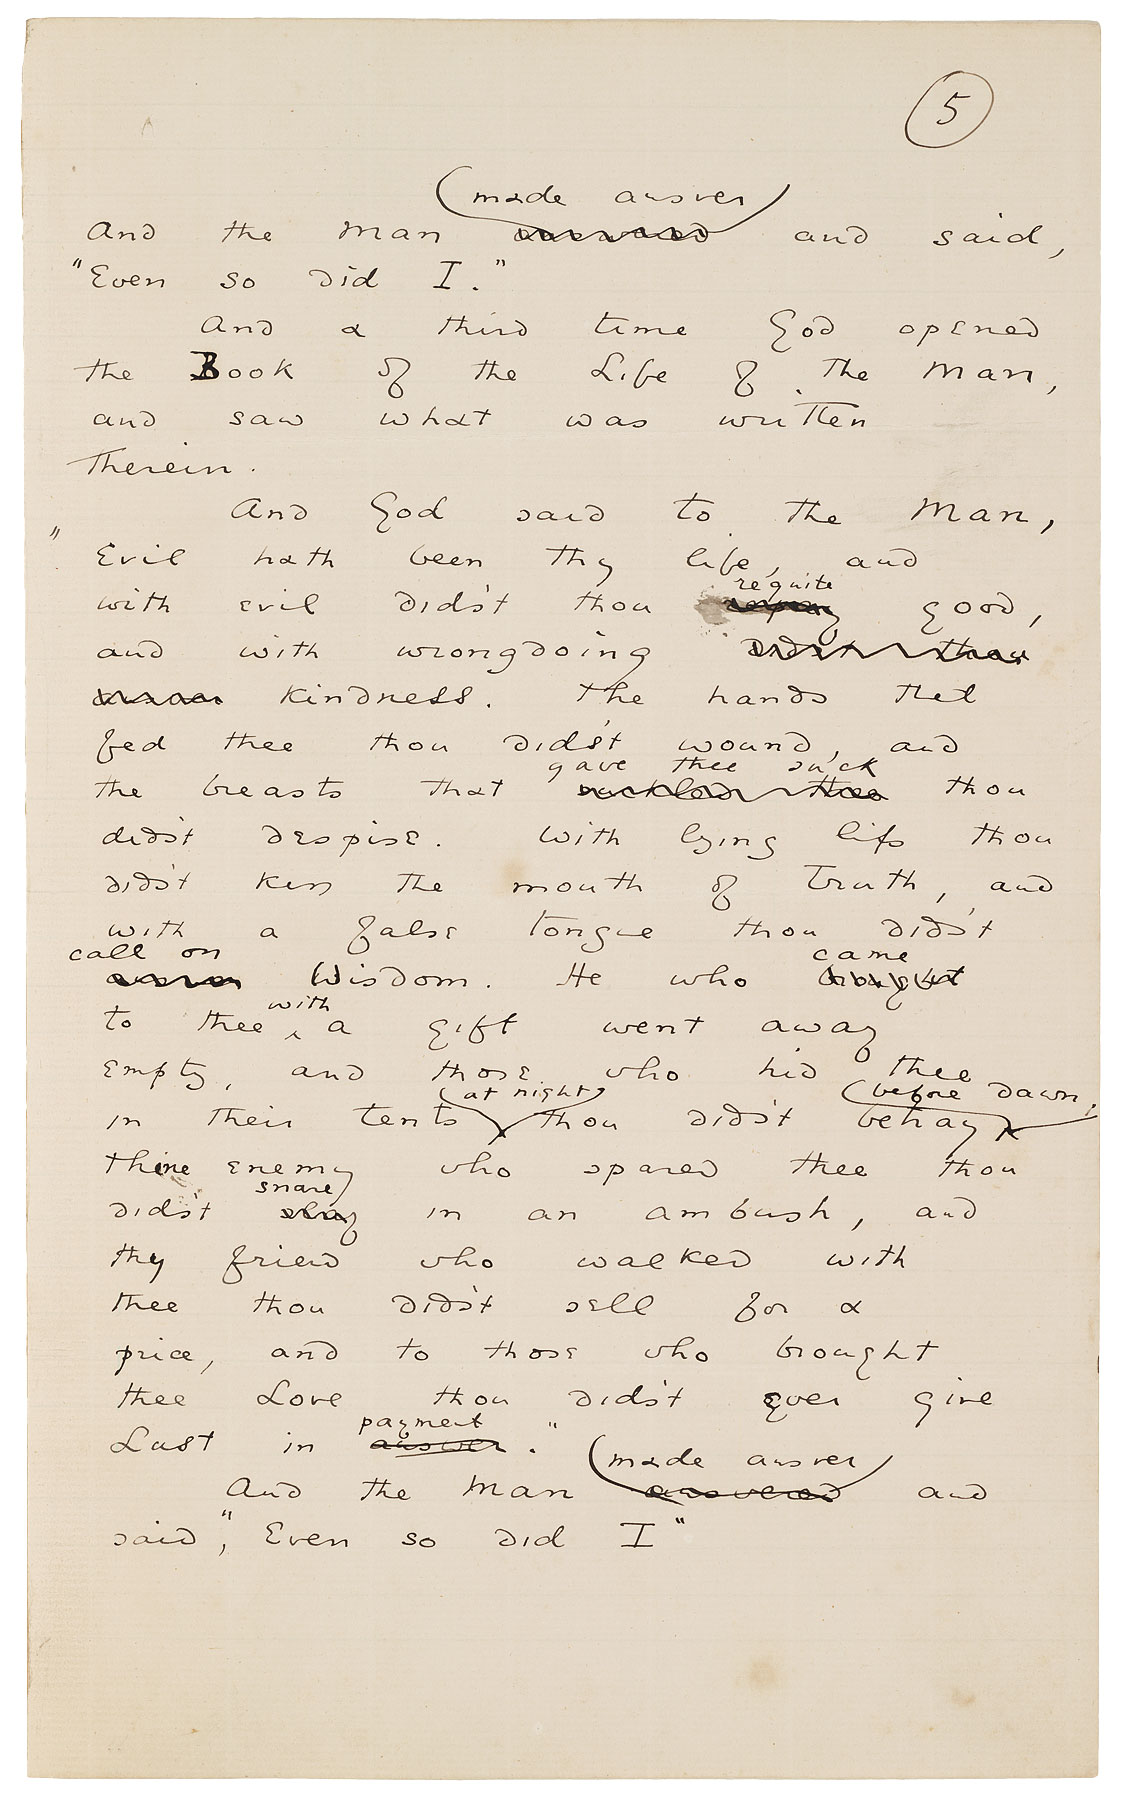 5
made answer
And the Man answered and said,
"Even so did I."
And a third time God opened
the Book of the Life of the Man,
and saw what was written
therein.
And God said to the Man,
"Evil hath been thy life, and
requite
with evil did'st thou repay good,
and with wrongdoing did'st thou
kindness. The hands that
fed thee thou did'st wound, and
gave thee suck
the breasts that suckled thee thou
did'st despise. With lying lips thou
did'st kiss the mouth of Truth, and
with a false tongue thou did'st
call on
Wisdom. He who brought
came
with
to thee a gift went away
empty, and those who hid thee
at night before dawn,
in their tents thou did'st betray
thine enemy who spared thee thou
snare
did'st slay in an ambush, and
thy friend who walked with
thee thou did'st sell for a
price, and to those who brought
thee Love thou did'st ever give
payment
Lust in answer."
made answer
And the Man answered and
said, "Even so did I"